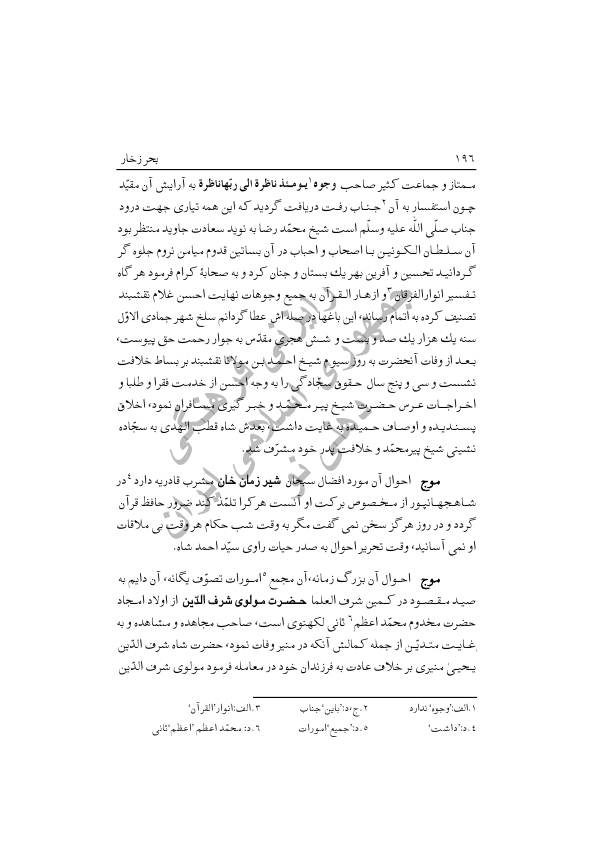 ۱۹۶ بحر زخار
ممتاز و جماعت کثیر صاحب وجوه۱ یومئذ ناظرة الی ربّها ناظرة به آرایش آن مقیّد
چون استفسار به آن۲ جناب رفت دریافت گردید که این همه تیاری جهت درود
جناب صلّی الله علیه وسلّم است شیخ محمّد رضا به نوید سعادت جاوید منتظر بود
آن سلطان الکونین با اصحاب و احباب در آن بساتین قدوم میامن نروم جلوه گر
گردانید تحسین و آفرین بهر یك بستان و جنان کرد و به صحابۀ کرام فرمود هر گاه
تفسیر انوارالفرقان۳ و ازهار القرآن به جمیع وجوهات نهایت احسن غلام نقشبند
تصنیف کرده به اتمام رساند، این باغها در صله اش عطا گردانم سلخ شهر جمادی الاوّل
سنه یك هزار یك صد و بست و شش هجری مقدّس به جوار رحمت حق پیوست،
بعد از وفات آنحضرت به روز سیوم شیخ احمد بن مولانا نقشبند بر بساط خلافت
نشست و سی و پنج سال حقوق سجّادگی را به وجه احسن از خدمت فقرا و طلبا و
اخراجات عرس حضرت شیخ پیر محمّد و خبر گیری مسافران نمود، اخلاق
پسندیده و اوصاف حمیده به غایت داشت، بعدش شاه قطب الهدی به سجّاده
نشینی شیخ پیرمحمّد و خلافت پدر خود مشرّف شد.
موج احوال آن مورد افضال سبحان شیر زمان خان مشرب قادریه دارد۴ در
شاهجهانپور از مخصوص برکت او آنست هر کرا تلمّذ کند ضرور حافظ قرآن
گردد و در روز هرگز سخن نمی گفت مگر به وقت شب حکام هر وقت بی ملاقات
او نمی آسانید، وقت تحریر احوال به صدر حیات راوی سیّد احمد شاه.
موج احوال آن بزرگ زمانه، آن مجمع۵ امورات تصوّف یگانه، آن دایم به
صید مقصود در کمین شرف العلما حضرت مولوی شرف الدّین از اولاد امجاد
حضرت مخدوم محمّد اعظم۶ ثانی لکهنوی است، صاحب مجاهده و مشاهده و به
غایت متدیّن از جمله کمالش آنکه در منیر وفات نمود، حضرت شاه شرف الدّین
یحییٰ منیری بر خلاف عادت به فرزندان خود در معامله فرمود مولوی شرف الدّین
۱. الف: 'وجوه' ندارد ۲. ج، د: 'باین' جناب ۳. الف: انوار 'القرآن'
۴. د: 'داشت' ۵. د: 'جمیع' امورات ۶. د: محمّد اعظم 'اعظم' ثانی